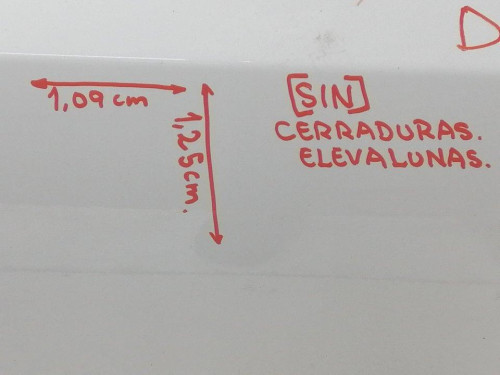 D
1,09 cm
1,25 cm.
[SIN]
CERRADURAS.
ELEVALUNAS.